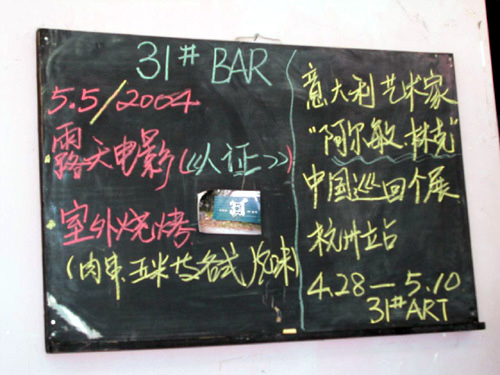 31# BAR
5.5/2004
露天电影(《人证》)
室外烧烤
(肉串.玉米及各式风味)
意大利艺术家
"阿尔敏.林克"
中国巡回个展
杭州站
4.28—5.10
31# ART